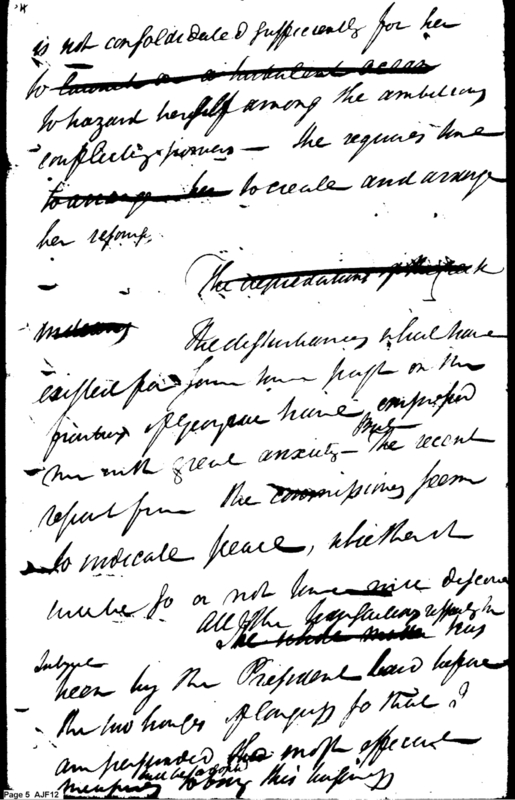 is not consolidated sufficiently for her
to launch on a turbulent ocean
to hazard herself among the ambitious
conflicting powers — She requires time
to arrange her to create and arrange
her
The depredations of the Creek
Indians The disturbances which have
existed for some time past on the
frontiers of Georgia have impressed
me with great anxiety — But The recent
report from the commissioners seem
to indicate peace, whether it
will be so or not time will discover
All the transactions respecting the
The whole matter has
Subject
been by the President laid before
the two houses of Congress so that I
am persuaded that most efficient
will be adopted
measures to this business
Page 5 AJF12